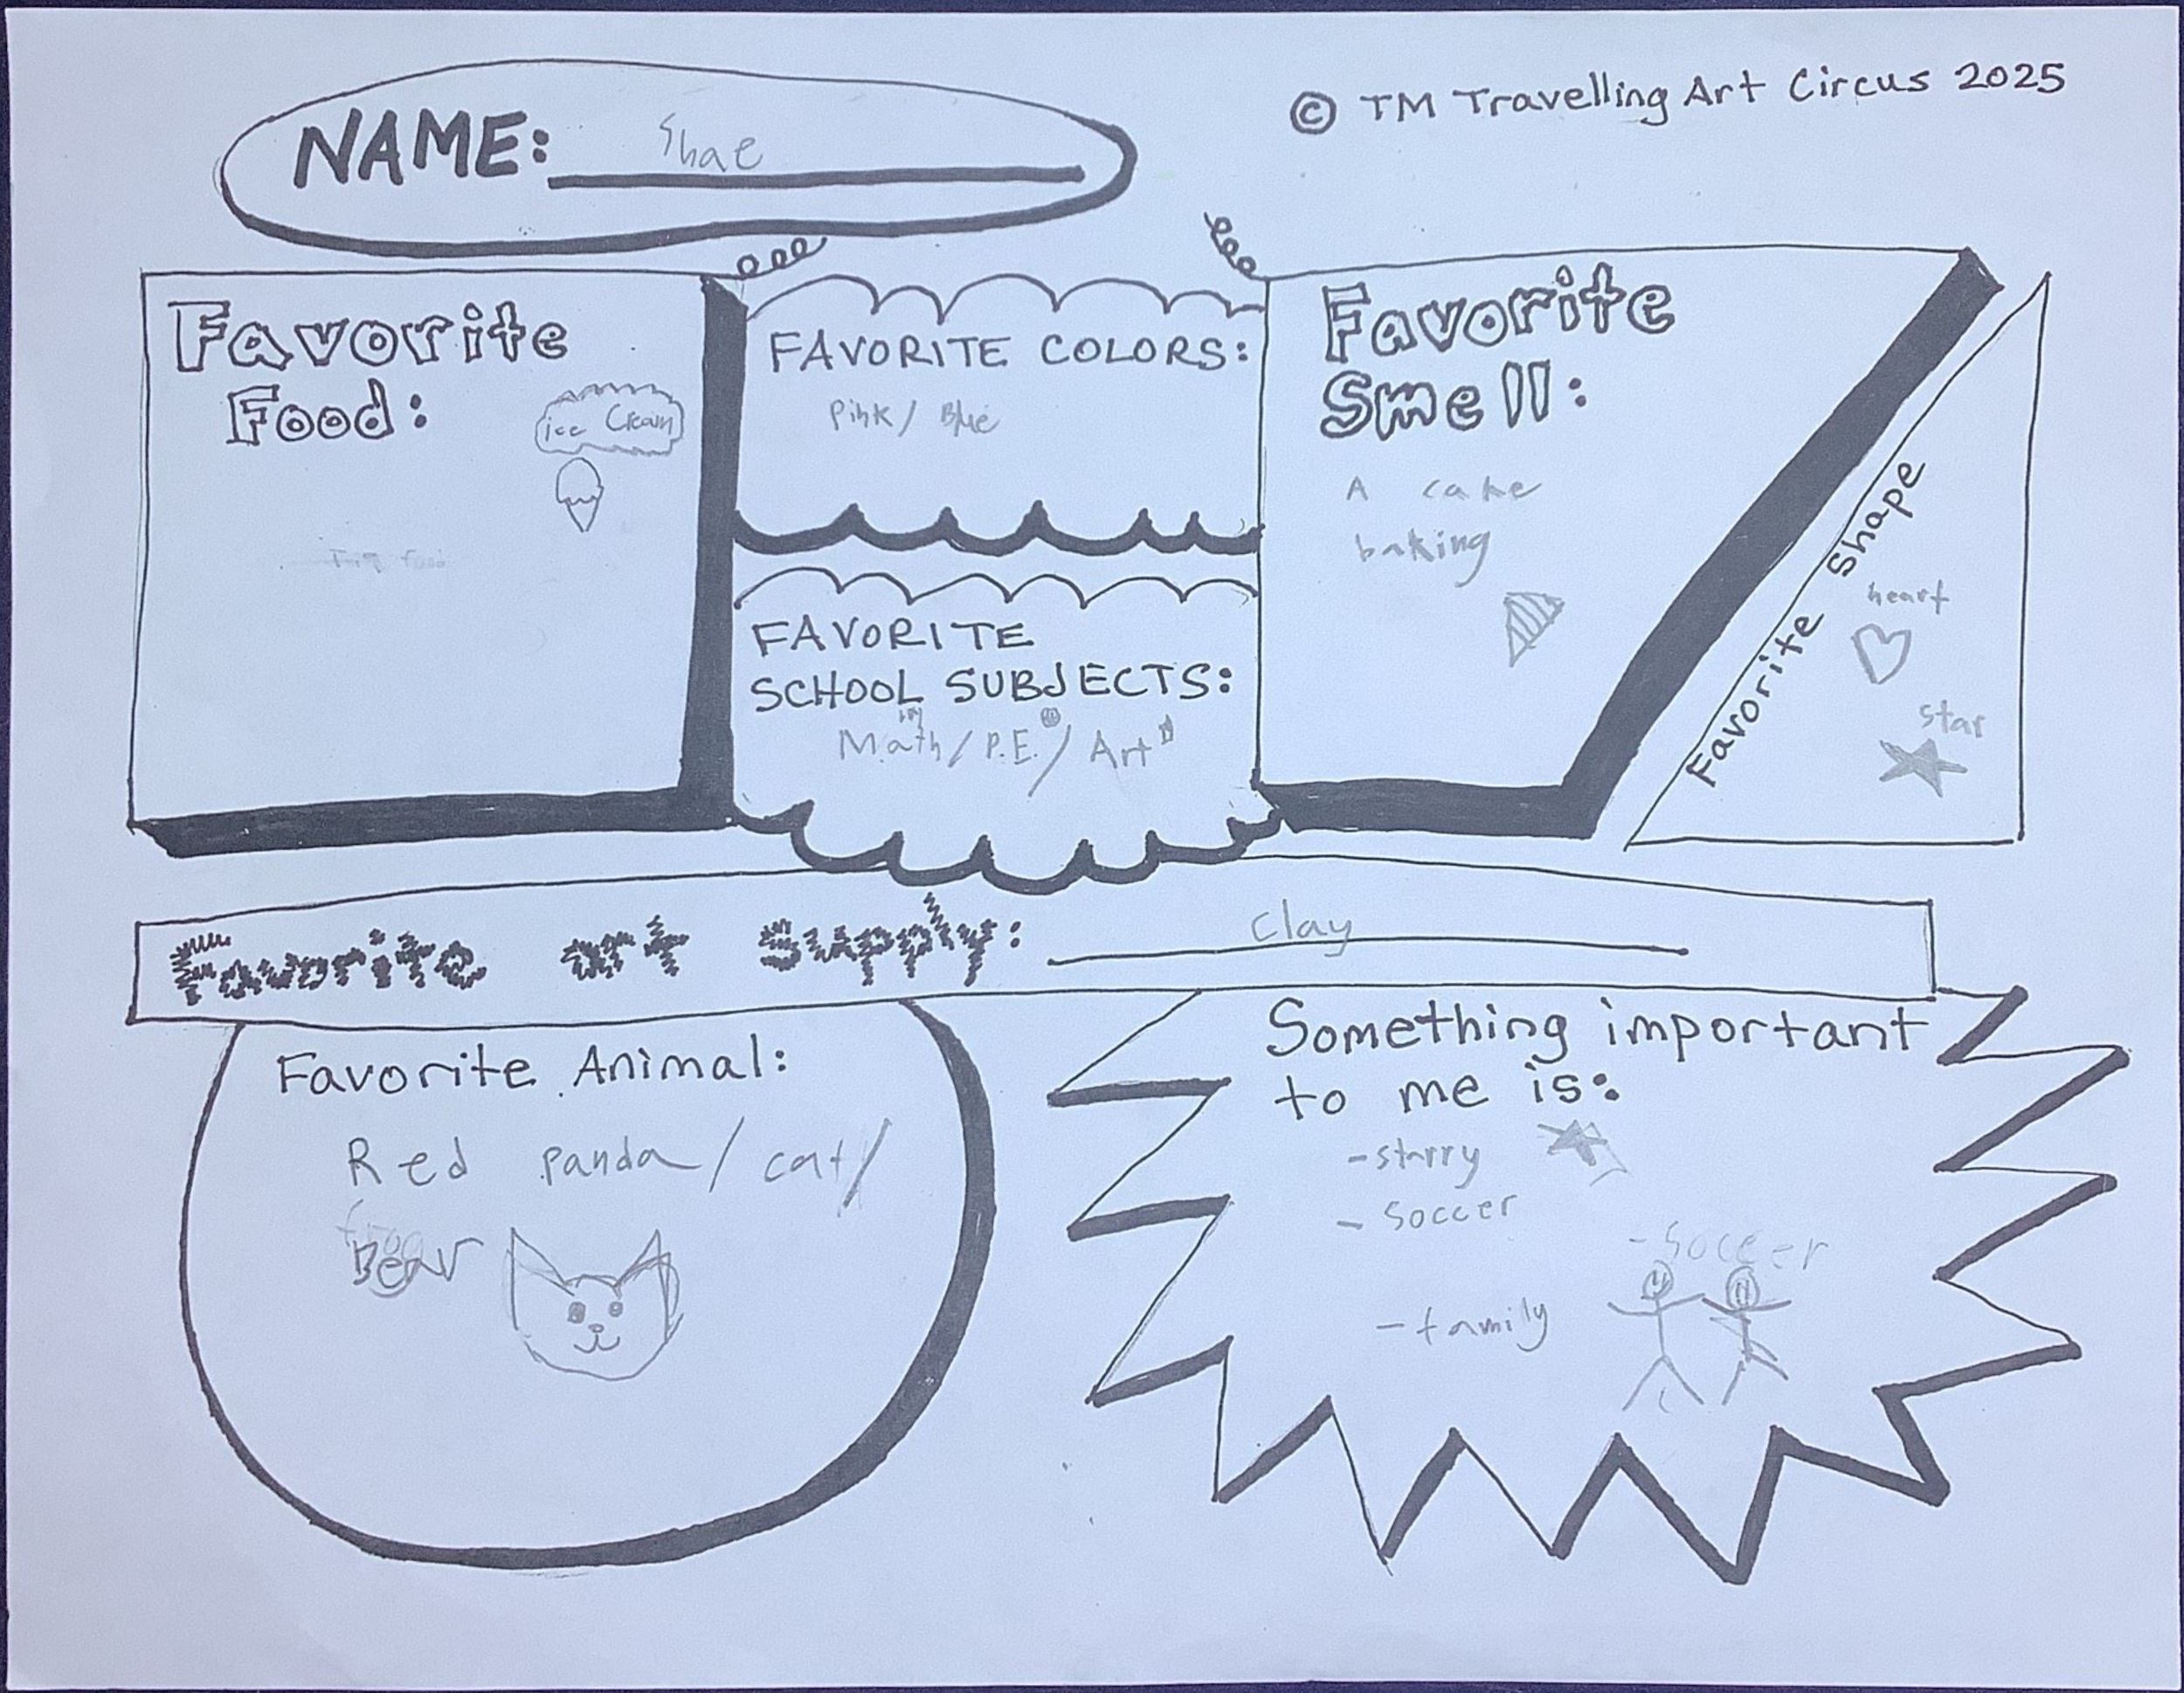 © TM Travelling Art Circus 2025
NAME: Shae
Favorite
Food:
ice Cream
FAVORITE COLORS:
Pink / Blue
FAVORITE
SCHOOL SUBJECTS:
Math / P.E. / Art
Favorite
Smell:
A cake
baking
Favorite Shape
heart
star
Favorite art supply: Clay
Favorite Animal:
Red panda / cat /
Bear
Something important
to me is:
- starry
- Soccer
- Soccer
- family